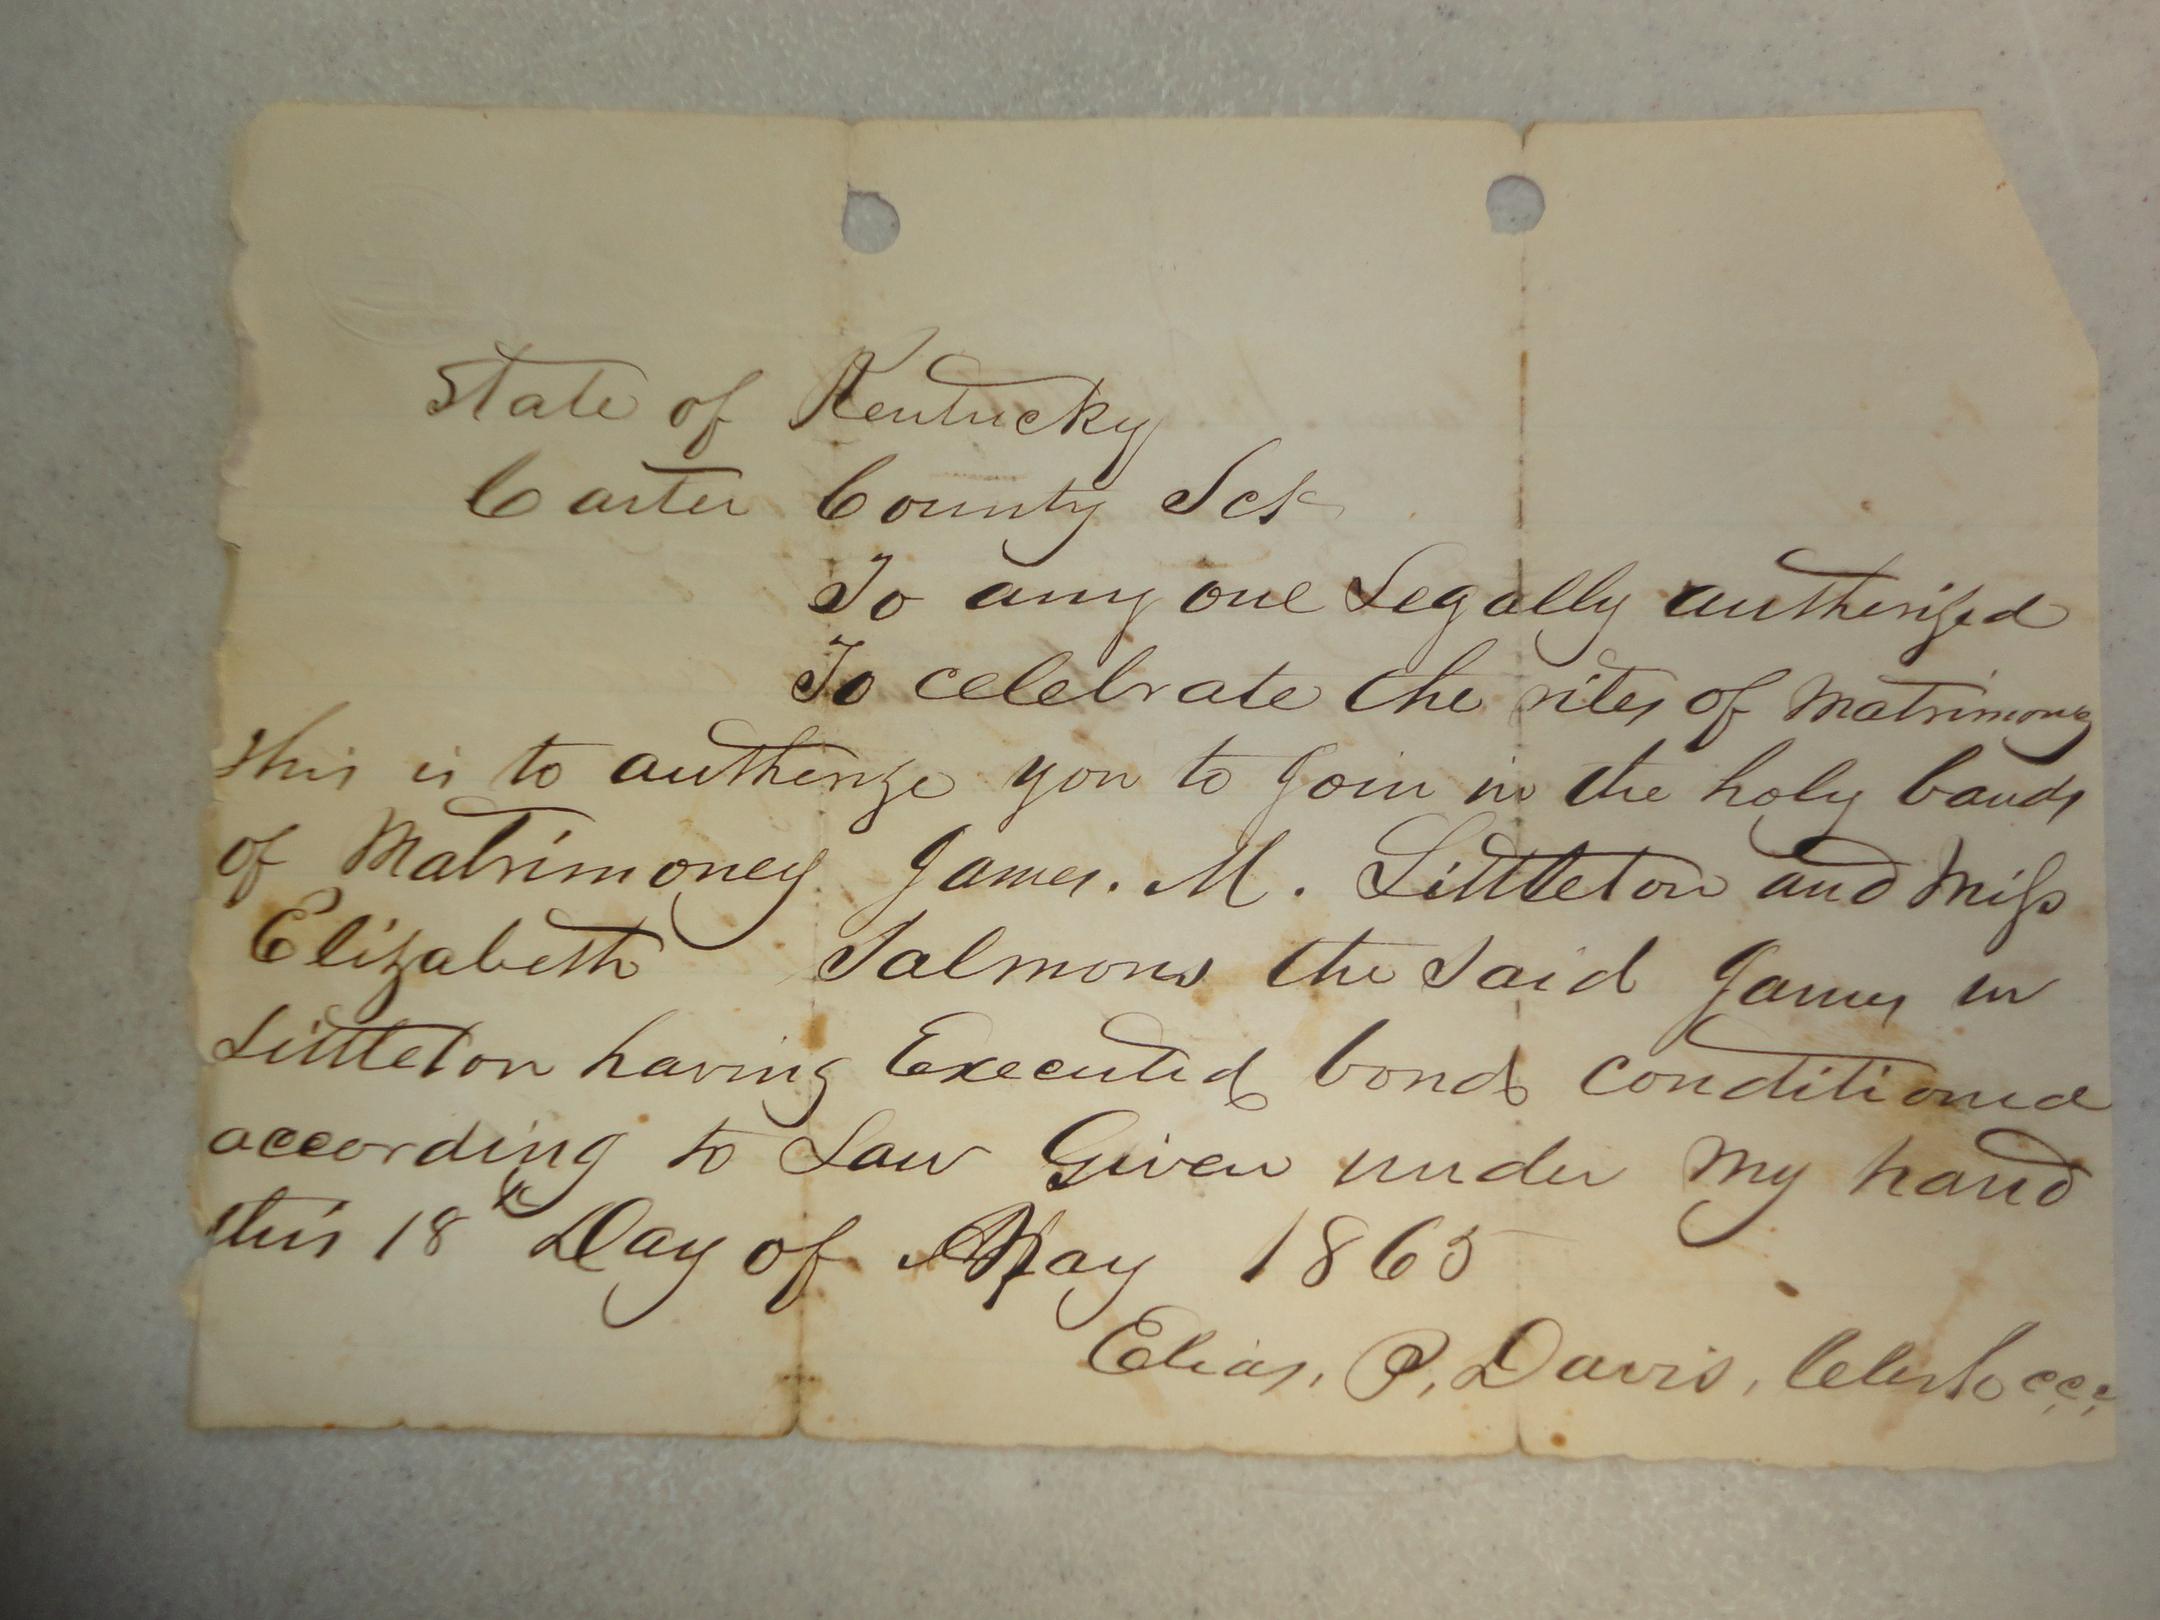 State of Kentucky
Carter County Sct
To any one Legally authorized
To celebrate the rites of Matrimony
this is to authorize you to Join in the holy bands
of Matrimoney James. M. Littleton and Miss
Elizabeth Salmons the Said James m
Littleton having Executed bond conditioned
according to Law Given under my hand
this 18th Day of May 1865
Elias, P, Davis, Clerk c,c,c,